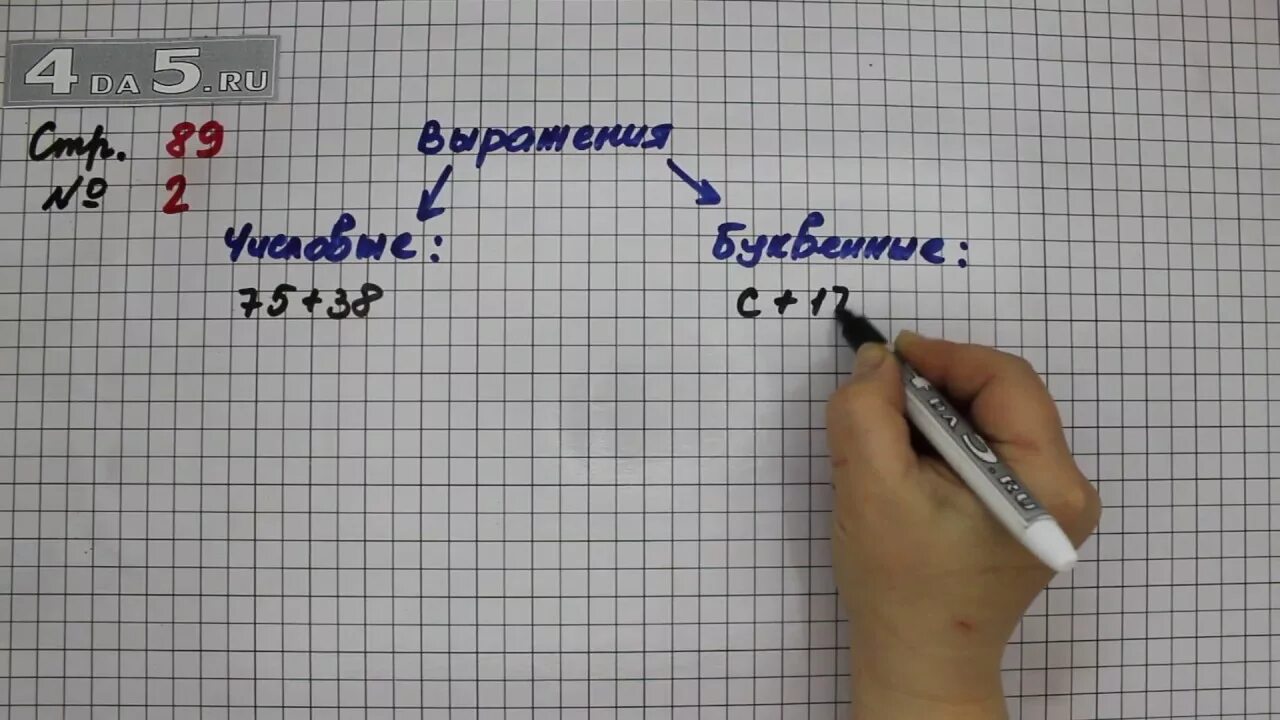 4DA5.RU
Стр. 89
№ 2
Выражения
Числовые:
Буквенные:
75+38
с+12
4DA5.RU